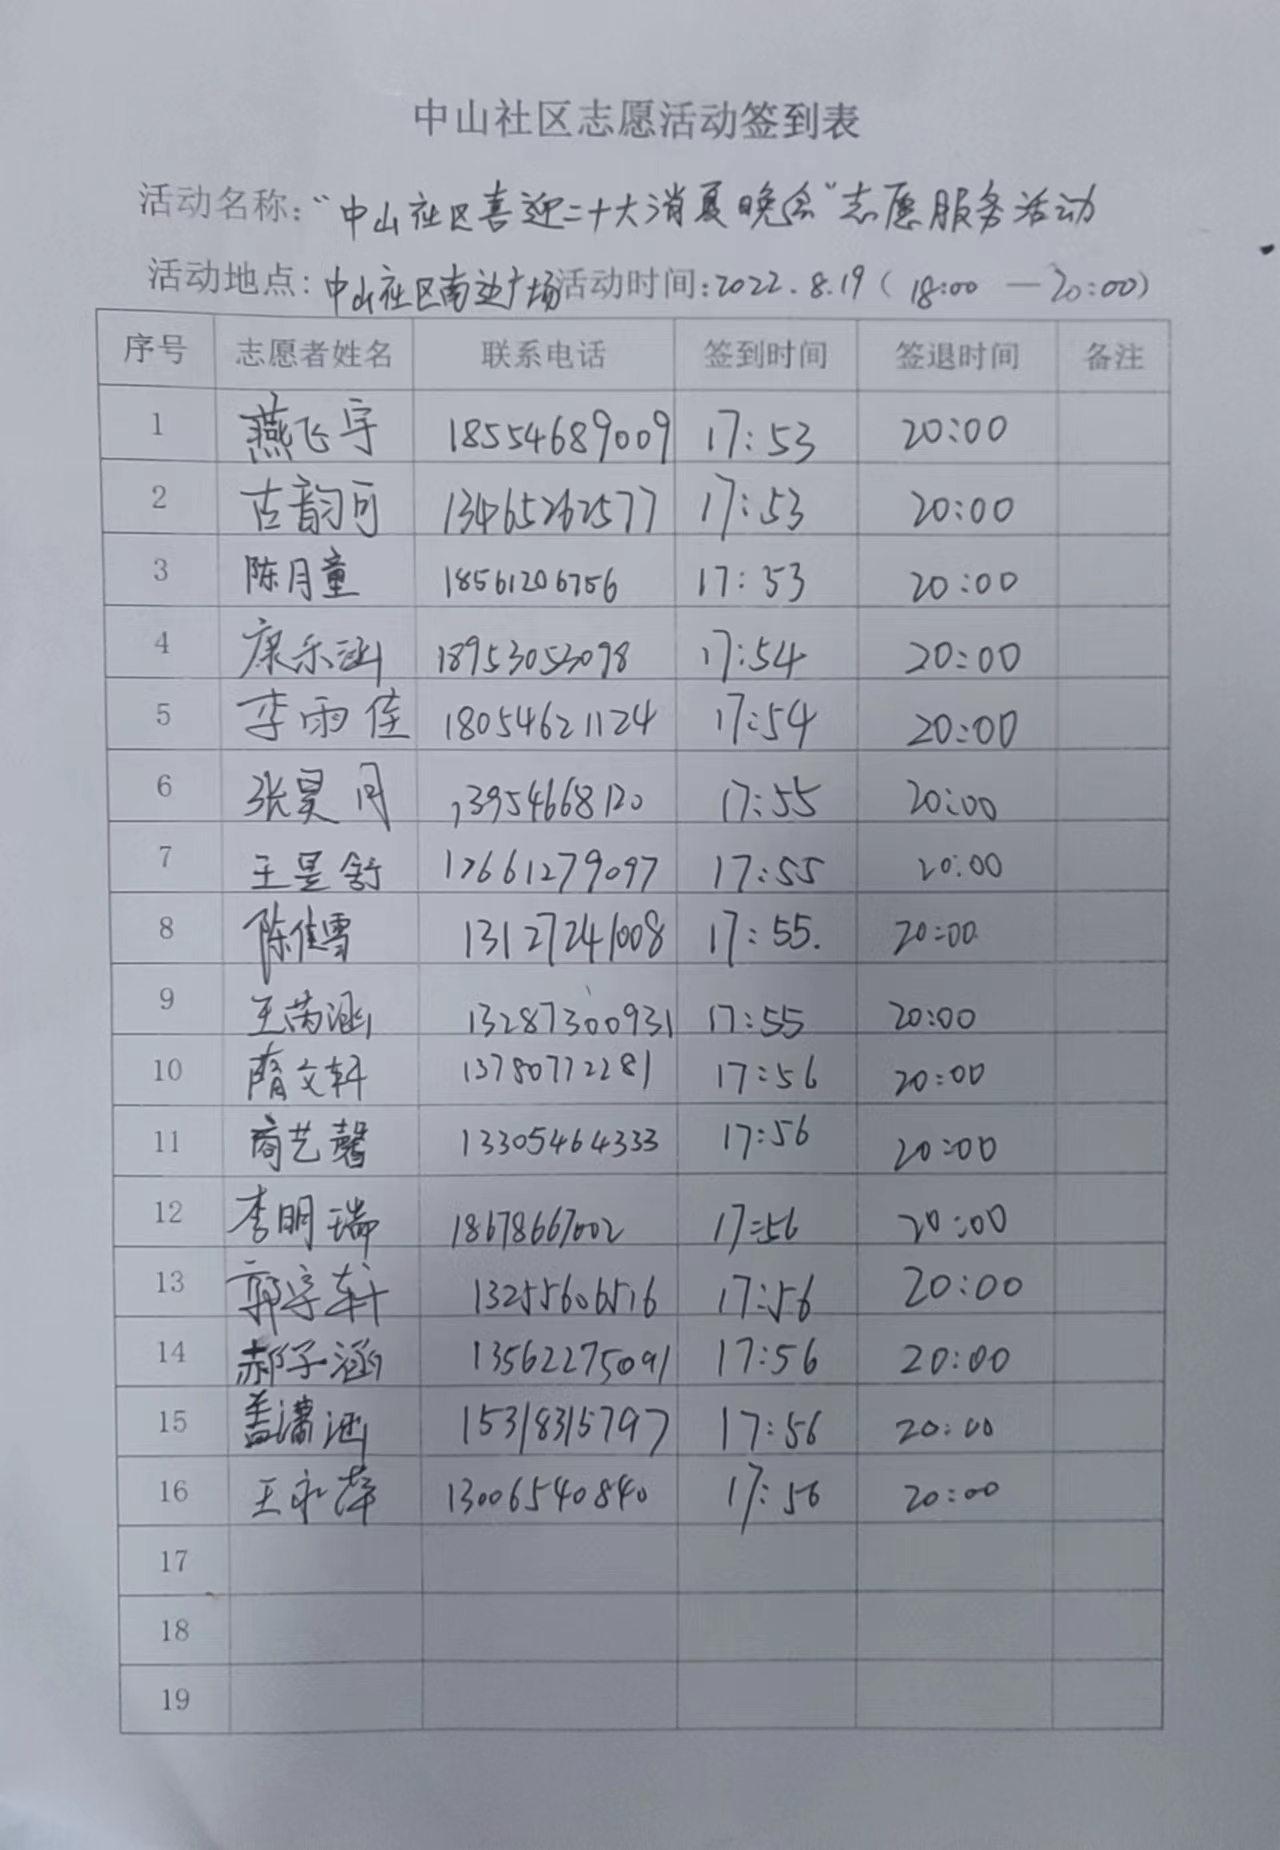 中山社区志愿活动签到表
活动名称:“中山社区喜迎二十大消夏晚会”志愿服务活动
活动地点:中山社区南边广场活动时间:2022.8.19(18:00—20:00)
序号 志愿者姓名 联系电话 签到时间 签退时间 备注
1 燕飞宇 18554689009 17:53 20:00
2 古韵可 13465262577 17:53 20:00
3 陈月童 18561206756 17:53 20:00
4 康乐涵 18953053098 17:54 20:00
5 李雨佳 18054621124 17:54 20:00
6 张昊月 13954668120 17:55 20:00
7 王昱舒 17661279097 17:55 20:00
8 陈佳雪 13127241008 17:55. 20:00
9 王芮涵 13287300931 17:55 20:00
10 隋文轩 13780772281 17:56 20:00
11 商艺馨 13305464333 17:56 20:00
12 李明瑞 18678667002 17:56 20:00
13 郭宇轩 13255606516 17:56 20:00
14 郝子涵 13562275091 17:56 20:00
15 盖潇涵 15318315797 17:56 20:00
16 王永萍 13006540840 17:56 20:00
17
18
19